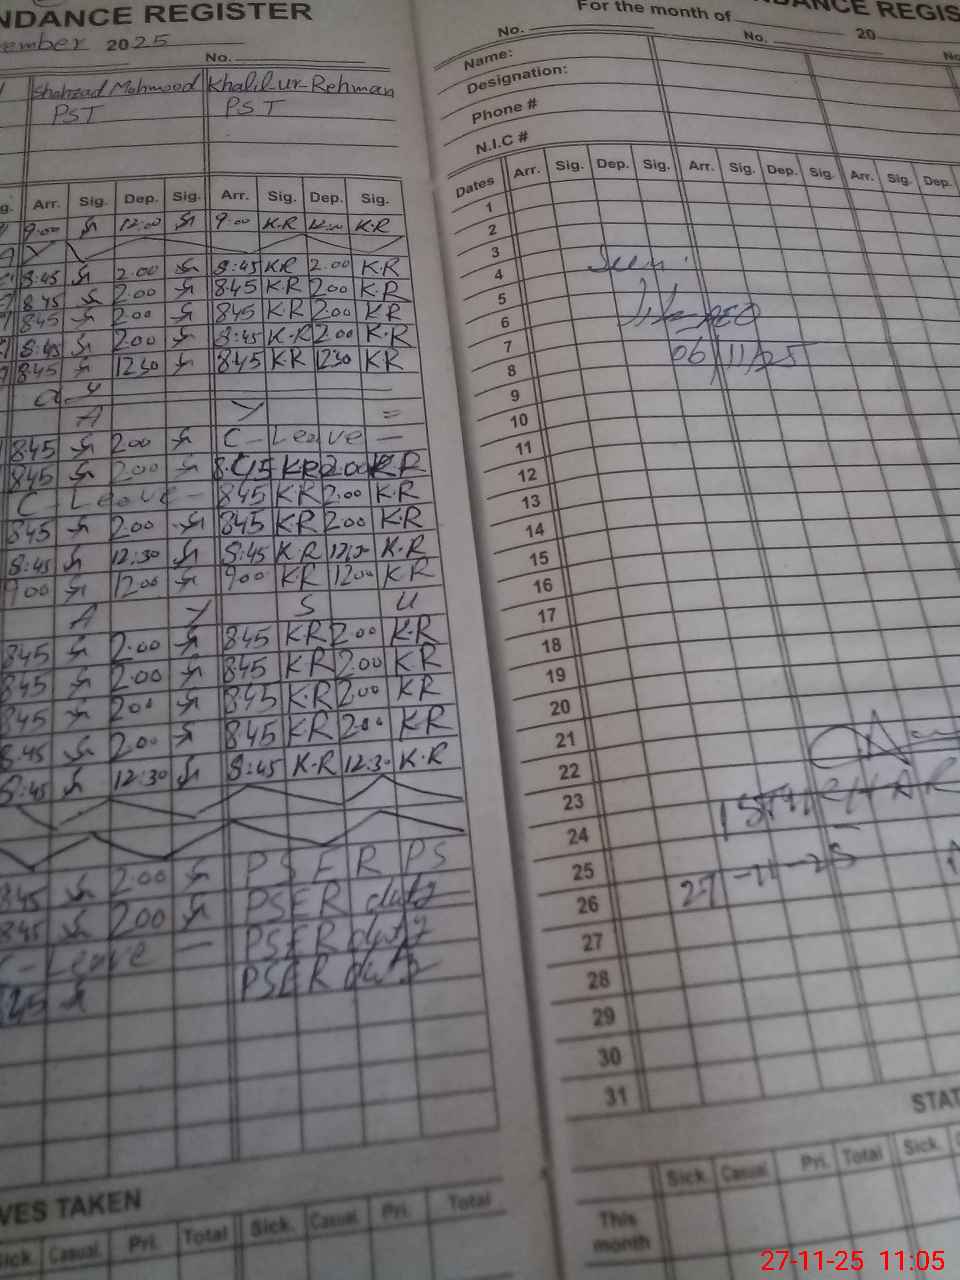 NDANCE REGISTER
ember 2025
No.
Shahzad Mahmood Khalil-ur-Rehman
PST PST
g. Arr. Sig. Dep. Sig. Arr. Sig. Dep. Sig.
9:00 12:00 9:00 K.R K.R
8:45 2:00 8:45 K.R 2:00 K.R
8 45 2:00 845 K.R 200 K.R
845 200 845 K.R 2:00 KR
8:45 200 8:45 K.R 2:00 K.R
845 1230 845 KR 1230 KR
A Y =
845 2:00 C-Leave -
845 2:00 8:45 KR 2:00 KR
C-Leave - 845 K.R 2:00 K.R
845 2:00 845 K.R 200 K.R
8:45 12:30 8:45 K.R K.R
900 1200 900 K.R 1200 KR
A Y S U
845 2:00 845 K.R 2:00 K.R
845 2:00 845 K.R 200 K.R
845 200 845 K.R 200 KR
8:45 200 845 KR 200 K.R
8:45 12:30 8:45 K.R 12:30 K.R
845 2:00 PSER PS
845 200 PSER duty
C-Leave - PSER duty
845 PSER duty
VES TAKEN
Sick. Casual. Pri. Total Sick. Casual. Pri. Total
NDANCE REGIS
For the month of 20
No. No. No
Name:
Designation:
Phone #
N.I.C #
Dates Arr. Sig. Dep. Sig. Arr. Sig. Dep. Sig. Arr. Sig. Dep.
1
2
3
4 Seen
5
6 AEO
7 06/11/25
8
9
10
11
12
13
14
15
16
17
18
19
20
21
22
23
24
25
26 27-11-25
27
28
29
30
31
STAT
Sick. Casual. Pri. Total Sick.
This
month
27-11-25 11:05